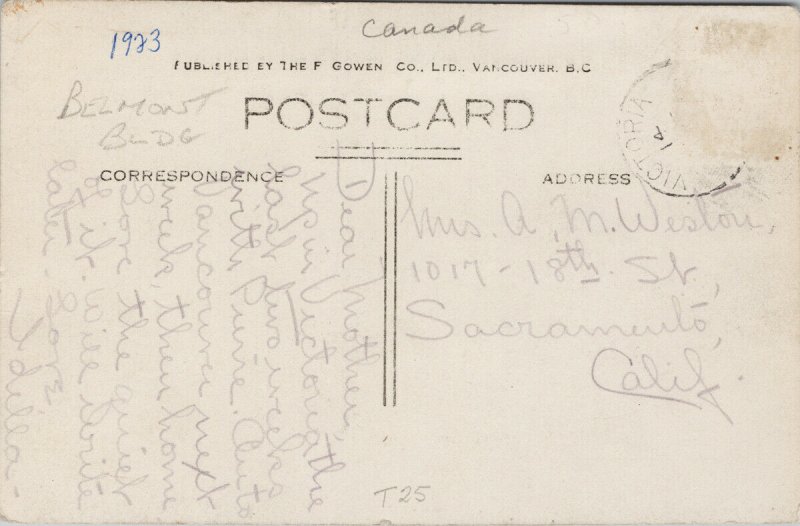 Canada
1923
PUBLISHED BY THE F GOWEN CO., LTD., VANCOUVER. B.C
BELMONT
BLDG
POSTCARD
VICTORIA
CORRESPONDENCE
ADDRESS
Dear Mother,
in Victoria the
last two weeks
with Pierre.
Vancouver next
week, then home
Love the quiet
of it. Will write
later. Love
Idella-
Mrs. A. M. Weston,
1017-18th St,
Sacramento,
Calif.
T25